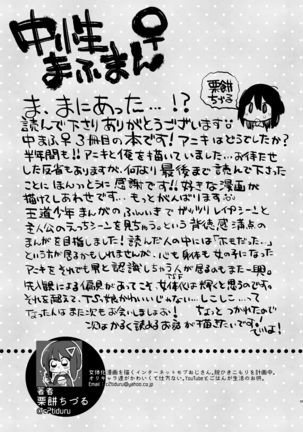 中性
まふまん♀
栗餅
ちづる
ま、まにあった…!?
読んで下さりありがとうございます
中まふ♀3冊目の本です!アニキはどうでしたか?
半年間も!!アニキと俺を描いていました…お待たせ
した反省もありますが、何より最後まで読んで下さった
ことにほんっとうに感謝です!!好きな漫画が
描けてしあわせです…もっとがんばります
王道少年まんがのふんいきで
まんがを目指しました!読んだ人の中には「ホモだった…」
というかが居るかもしれませんが、心も身体も女の子になった
アニキをそれでも男と認識しちゃう人が居るのもまた一興。
先入観による偏見があってこそ、女体化は輝くと思うのです。
それを超えて、TS娘かわいいじゃない…しこしこ…って
なったらまた次もお会いしましょう!
ちょっとつかれたので
次はかるく読めるお話が描きたいです!
ではよ!
著者
栗餅ちづる
@c2tiduru
女体化漫画を描くインターネットモブおじさん。脱ひきこもりを計画中。
オリキャラ達がかわいくて仕方ない。YouTubeとごはんが生活のお供。
Email:c2tiduru@yahoo.co.jp